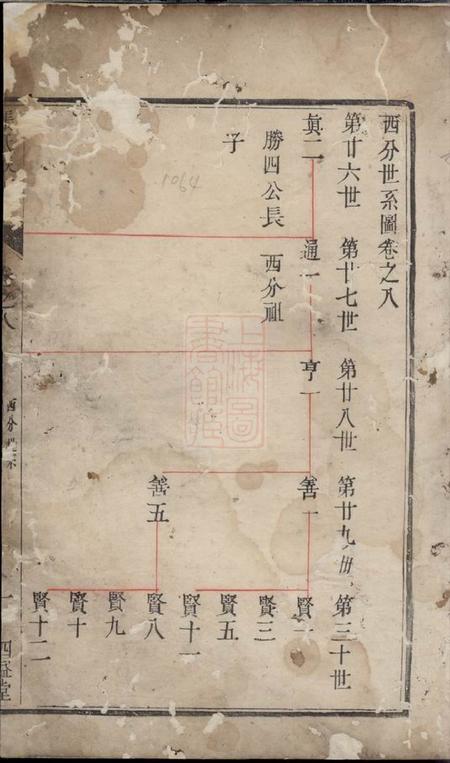 西分世系圖卷之八
第廿六世
第廿七世
第廿八世
第廿九世
第三十世
眞二
通一
亨一
善一
賢一
勝四公長
子
西分祖
賢三
賢五
賢十一
善五
賢八
賢九
賢十
賢十二
1064
上海圖
書館藏
西分世系
一
四盛堂